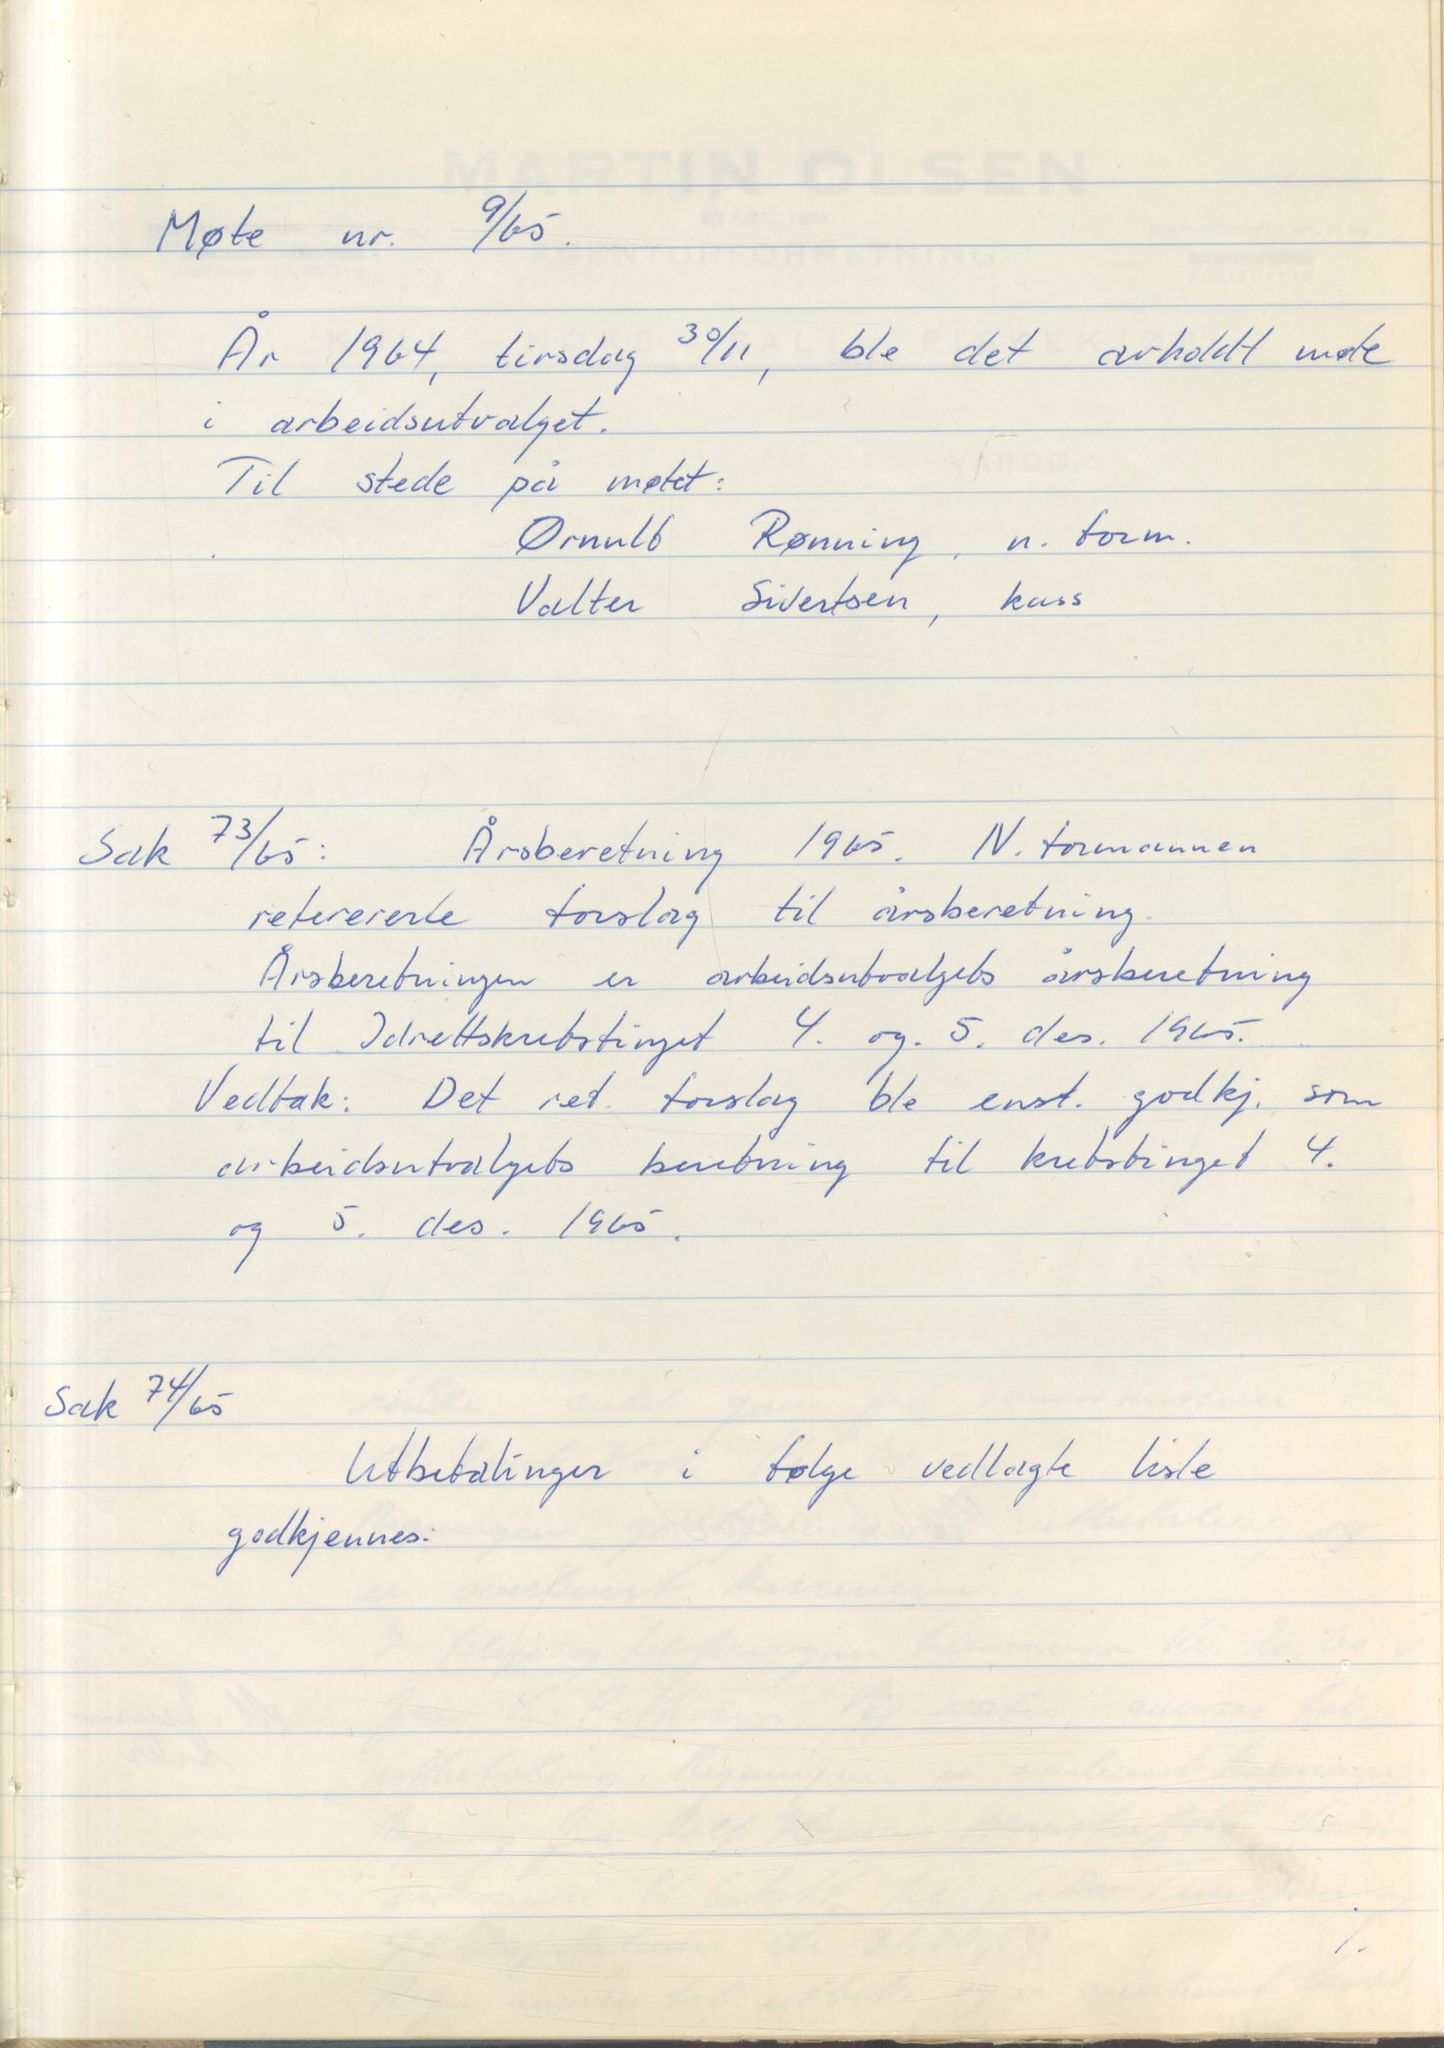 Møte nr. 9/65.
År 1964, tirsdag 30/11, ble det avholdt møte
i arbeidsutvalget.
Til stede på møtet:
Ørnulf Rønning, n. form.
Valter Sivertsen, kass
Sak 73/65: Årsberetning 1965. N. formannen
refererte forslag til årsberetning.
Årsberetningen er arbeidsutvalgets årsberetning
til Idrettskretstinget 4. og. 5. des. 1965.
Vedtak: Det ref. forslag ble enst. godkj. som
arbeidsutvalgets beretning til kretstinget 4.
og 5. des. 1965.
Sak 74/65
Utbetalinger i følge vedlagte liste
godkjennes: